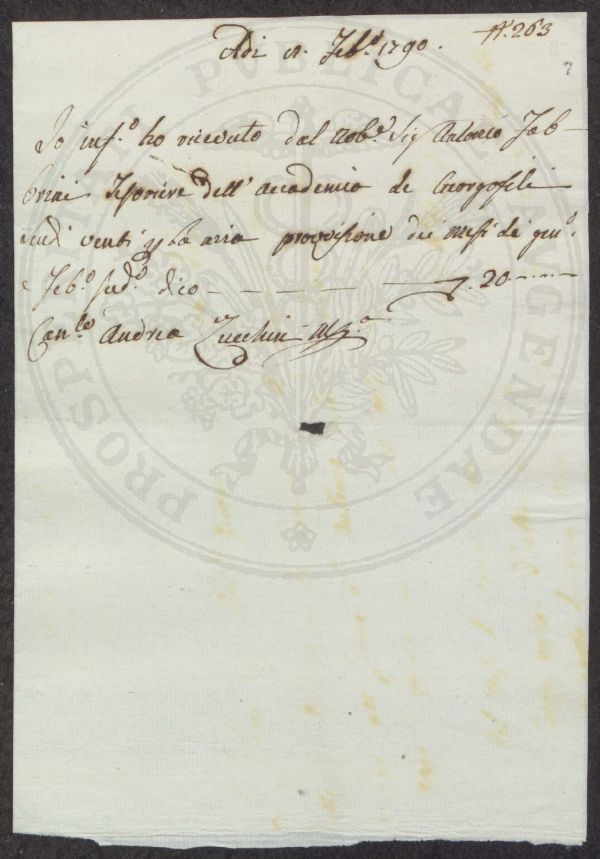 N.° 263
Adi Feb.° 1790.
Io inf.° ho ricevuto dal Nob.e Sig Antonio Fab-
brini Tesoriere dell'accademia de Georgofili
scudi venti p la mia provvisione dei mesi di gen.°
e Feb.° sud.° dico — — — — — 20 ——
Can.co Andrea Zucchini
PROSPERITATI PUBLICAE AUGENDAE